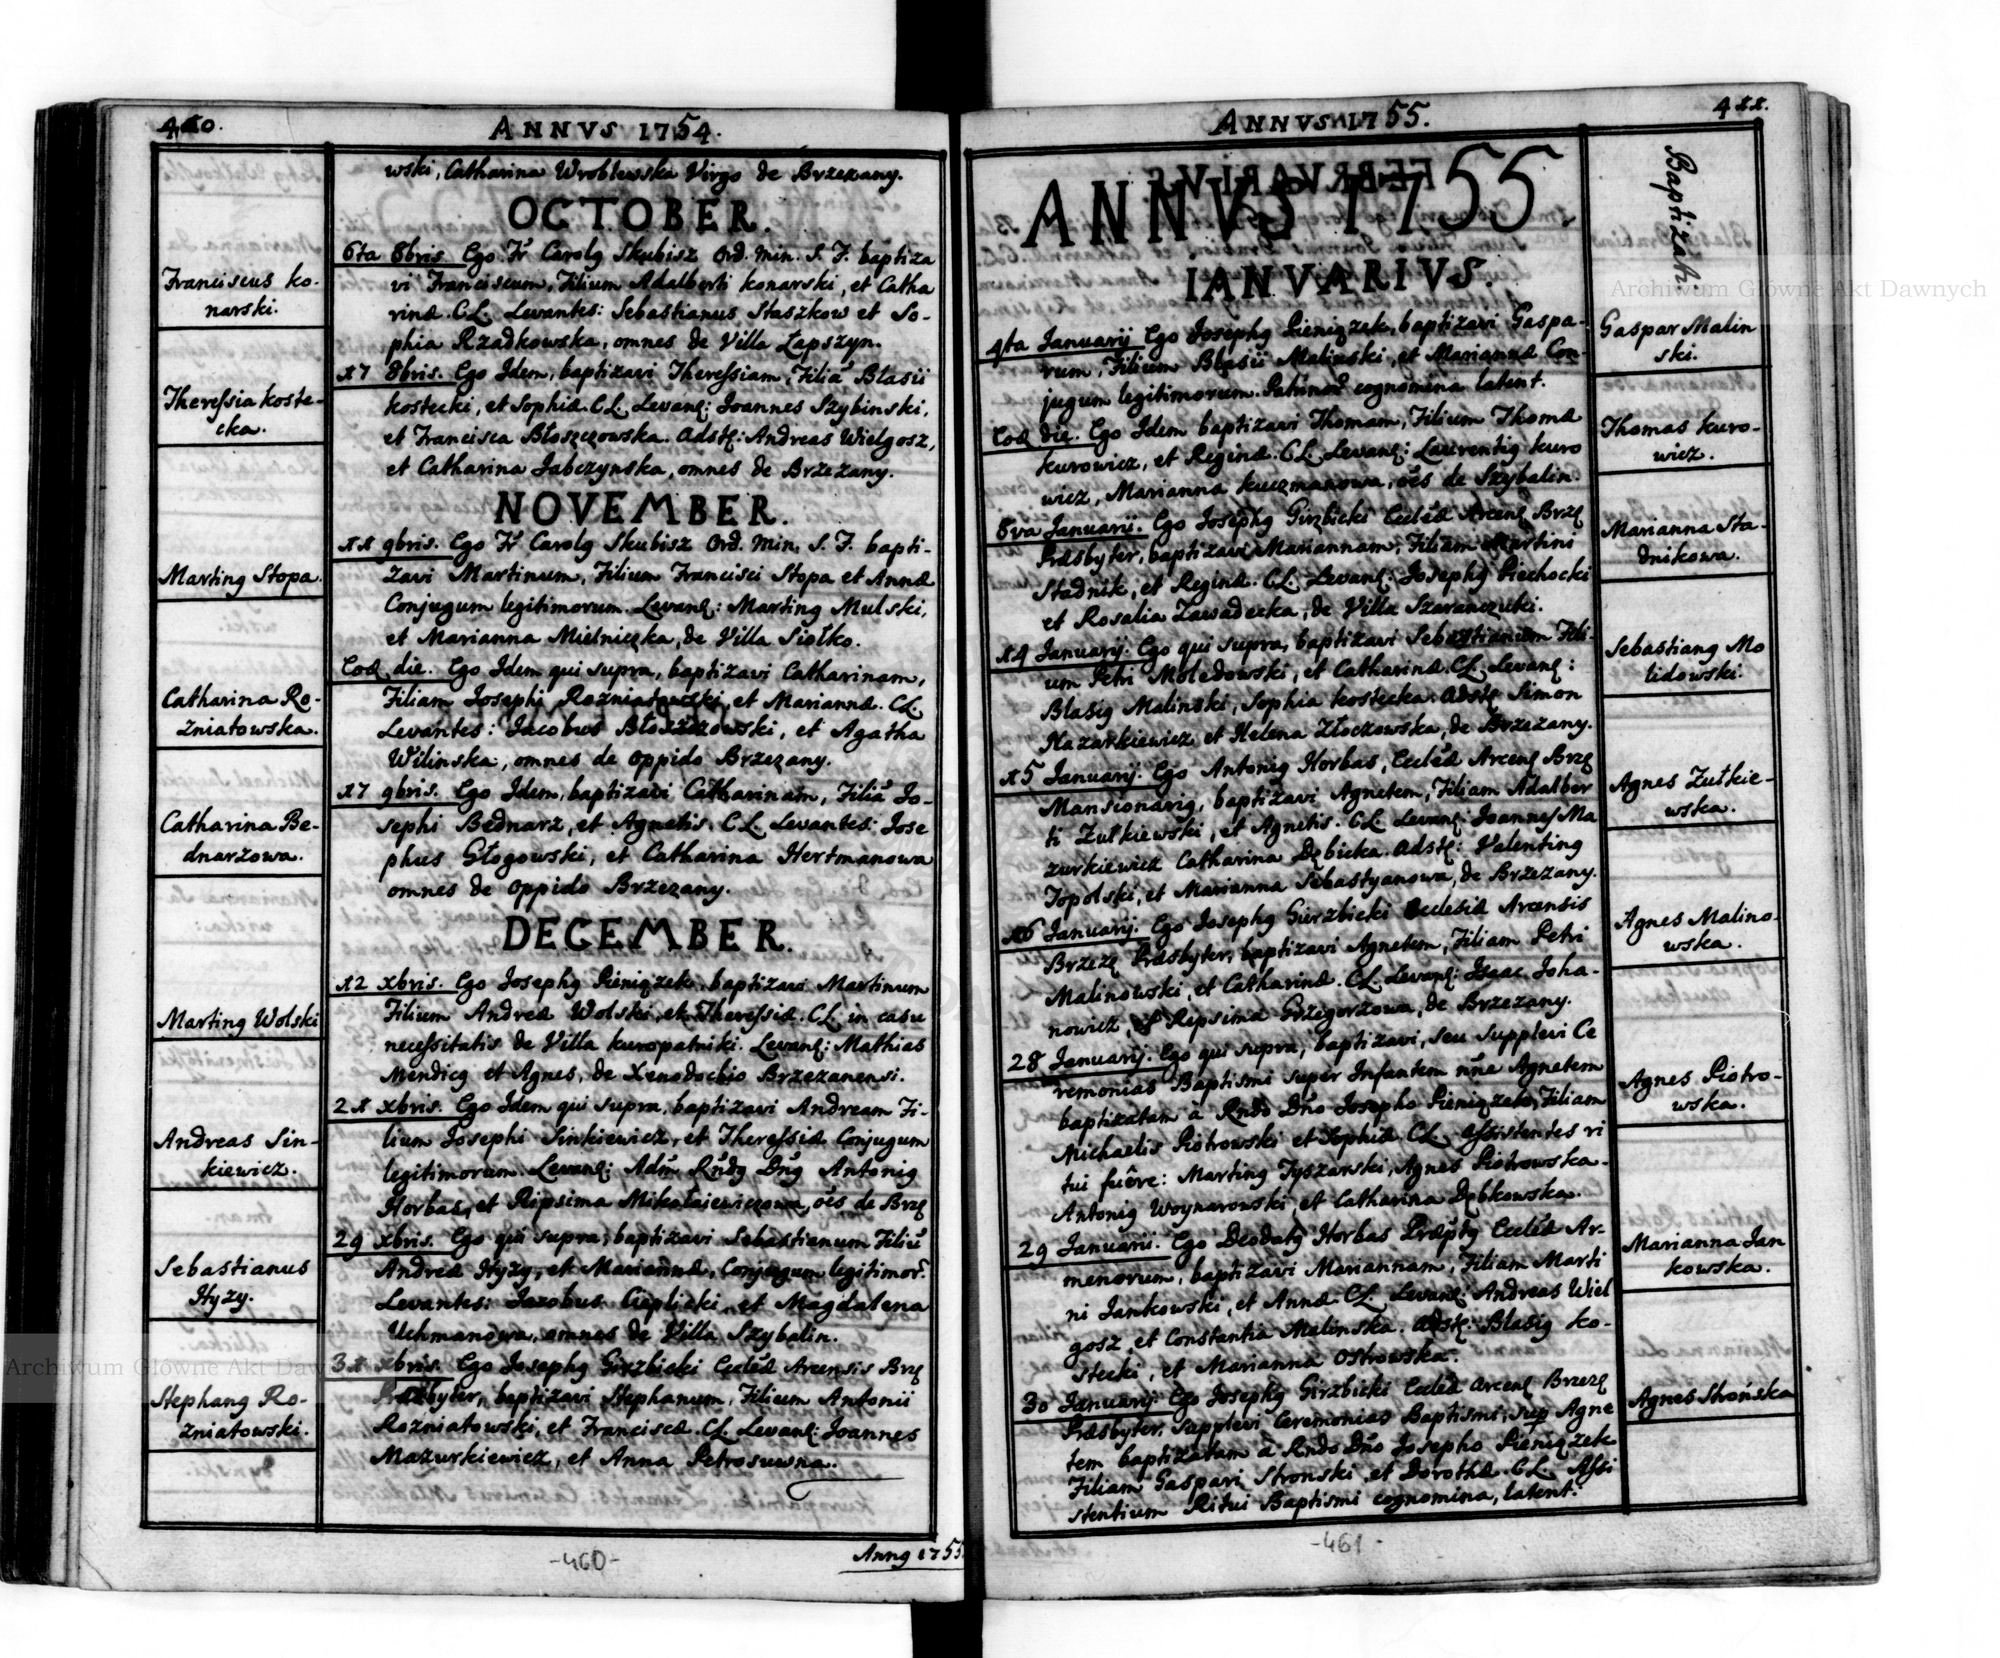 410.
ANNVS 1754.
wski, Catharina Wroblewska Virgo de Brzezany.
OCTOBER.
Franciscus Ko-
narski.
6ta 8bris. Ego Fr Carolg Skubisz Ord. Min. S. F. baptiza
vi Franciscum, Filium Adalberti Konarski, et Catha
rinæ. CL. Levantes: Sebastianus Staszkow et So-
phia Rzadkowska, omnes de Villa Łapszyn.
Theressia Koste-
cka.
17 8bris. Ego Idem, baptizavi Theressiam, Filiã Błasii
Kostecki, et Sophiæ. CL. Levanę: Joannes Szybinski,
et Francisca Błoszczowska. Adstę: Andreas Wielgosz,
et Catharina Jabczynska, omnes de Brzezany.
NOVEMBER.
Marting Stopa.
11 9bris. Ego Fr Carolg Skubisz Ord. Min. S. F. bapti-
zavi Martinum, Filium Francisci Stopa et Annæ
Conjugum legitimorum. Levanę: Marting Mulski,
et Marianna Mielniczka, de Villa Siołko.
Catharina Ro-
zniatowska.
Eod. die. Ego Idem qui supra, baptizavi Catharinam,
Filiam Josephi Rozniatowski, et Mariannæ. CL.
Levantes: Jacobus Błoszczowski, et Agatha
Wilinska, omnes de oppido Brzezany.
Catharina Be-
dnarzowa.
17 9bris. Ego Idem, baptizavi Catharinam, Filiã Jo-
sephi Bednarz, et Agnetis. CL. Levantes: Jose
phus Głogowski, et Catharina Hertmanowa
omnes de oppido Brzezany.
DECEMBER.
Marting Wolski
12 xbris. Ego Josephg Pieniązek, baptizavi Martinum
Filium Andreæ Wolski, et Theressiæ. CL. in casu
necessitatis de Villa Kuropatniki. Levanę: Mathias
Mendicg et Agnes, de Xenodochio Brzezanensi.
Andreas Sin-
kiewicz.
21 xbris. Ego Idem qui supra, baptizavi Andream Fi-
lium Josephi Sinkiewicz, et Theressiæ Conjugum
legitimorum. Levanę: Adm Rndg Dng Antonig
Horbas, et Ripsima Mikołaiewiczowa, oẽs de Brzę
Sebastianus
Hyzy.
29 xbris. Ego qui supra, baptizavi Sebastianum Filiũ
Andreæ Hyzy, et Mariannæ, Conjugum legitimor.
Levantes: Jacobus Cieplicki, et Magdalena
Uchmanowa, omnes de Villa Szybalin.
Stephang Ro-
zniatowski.
31 xbris. Ego Josephg Girzbicki Eccleæ Arcensis Brzę
Præsbyter, baptizavi Stephanum, Filium Antonii
Rozniatowski, et Franciscæ. CL. Levanę: Joannes
Mazurkiewicz, et Anna Petrosuwna.
Anng 1755.
-460-
ANNVS 1755.
411.
Baptizati.
ANNVS 1755
IANVARIVS.
Gaspar Malin
ski.
4ta Januarij Ego Josephg Pieniązek, baptizavi Gaspa-
rum, Filium Blasii Malinski, et Mariannæ Con-
jugum legitimorum. Patrinor cognomina latent.
Thomas Kuro-
wicz.
Eod. die. Ego Idem baptizavi Thomam, Filium Thomæ
Kurowicz, et Reginæ. CL. Levanę: Laurentig Kuro
wicz, Marianna Kuczmanowa, oẽs de Szybalin.
Marianna Sta-
dnikowa.
8va Januarii. Ego Josephg Girzbicki Eccleæ Arcenę Brzę
Præsbyter, baptizavi Mariannam, Filiam Martini
Stadnik, et Reginæ. CL. Levanę: Josephg Piechocki
et Rosalia Zawadecka, de Villa Szaranczuki.
Sebastiang Mo
lidowski.
14 Januarij. Ego qui supra, baptizavi Sebastianum Fili-
um Petri Moledowski, et Catharinæ. CL. Levanę:
Blasig Malinski, Sophia Kostecka. Adstę Simon
Nazarkiewicz et Helena Złoczowska, de Brzezany.
Agnes Zułkie-
wska.
15 Januarij. Ego Antonig Horbas, Eccleæ Arcenę Brzę
Mansionarig, baptizavi Agnetem, Filiam Adalber
ti Zułkiewski, et Agnetis. CL. Levanę: Joannes Ma
zurkiewicz Catharina Dębicka. Adstę: Valenting
Topolski, et Marianna Sebastyanowa, de Brzezany.
Agnes Malino-
wska.
16 Januarij. Ego Josephg Gierzbicki Ecclesiæ Arcensis
Brzezę Præsbyter, baptizavi Agnetem, Filiam Petri
Malinowski, et Catharinæ. CL. Levanę: Isaac Joha-
nowicz, & Repsima Grzegorzowa, de Brzezany.
Agnes Piotro-
wska.
28 Januarij. Ego qui supra, baptizavi, seu supplevi Ce
remonias Baptismi super Infantem nñe Agnetem
baptizatam à Rndo Dño Josepho Pieniązek, Filiam
Michaelis Piotrowski et Sophiæ CL. Assistentes ri
tui fuêre: Marting Tyszarski, Agnes Piotrowska.
Antonig Woynarowski, et Catharina Dębkowska.
Marianna Jan
kowska.
29 Januarii. Ego Deodatg Horbas Præptg Eccleæ Ar-
menorum, baptizavi Mariannam, Filiam Marti
ni Jankowski, et Annæ. CL. Levanę: Andreas Wiel
gosz, et Constantia Malinska. Adstę: Blasig Ko-
stecki, et Marianna Ostrowska.
Agnes Strońska
30 Januarij. Ego Josephg Girzbicki Eccleæ Arcenę Brzezę
Præsbyter, supplevi Ceremonias Baptismi, sup Agne
tem baptizatam à Rndo Dño Josepho Pieniązek
Filiam Gaspari Stronski, et Dorothæ. CL. Assi
stentium Ritui Baptismi cognomina, latent.
-461-
Archiwum Główne Akt Dawnych
Archiwum Główne Akt Daw